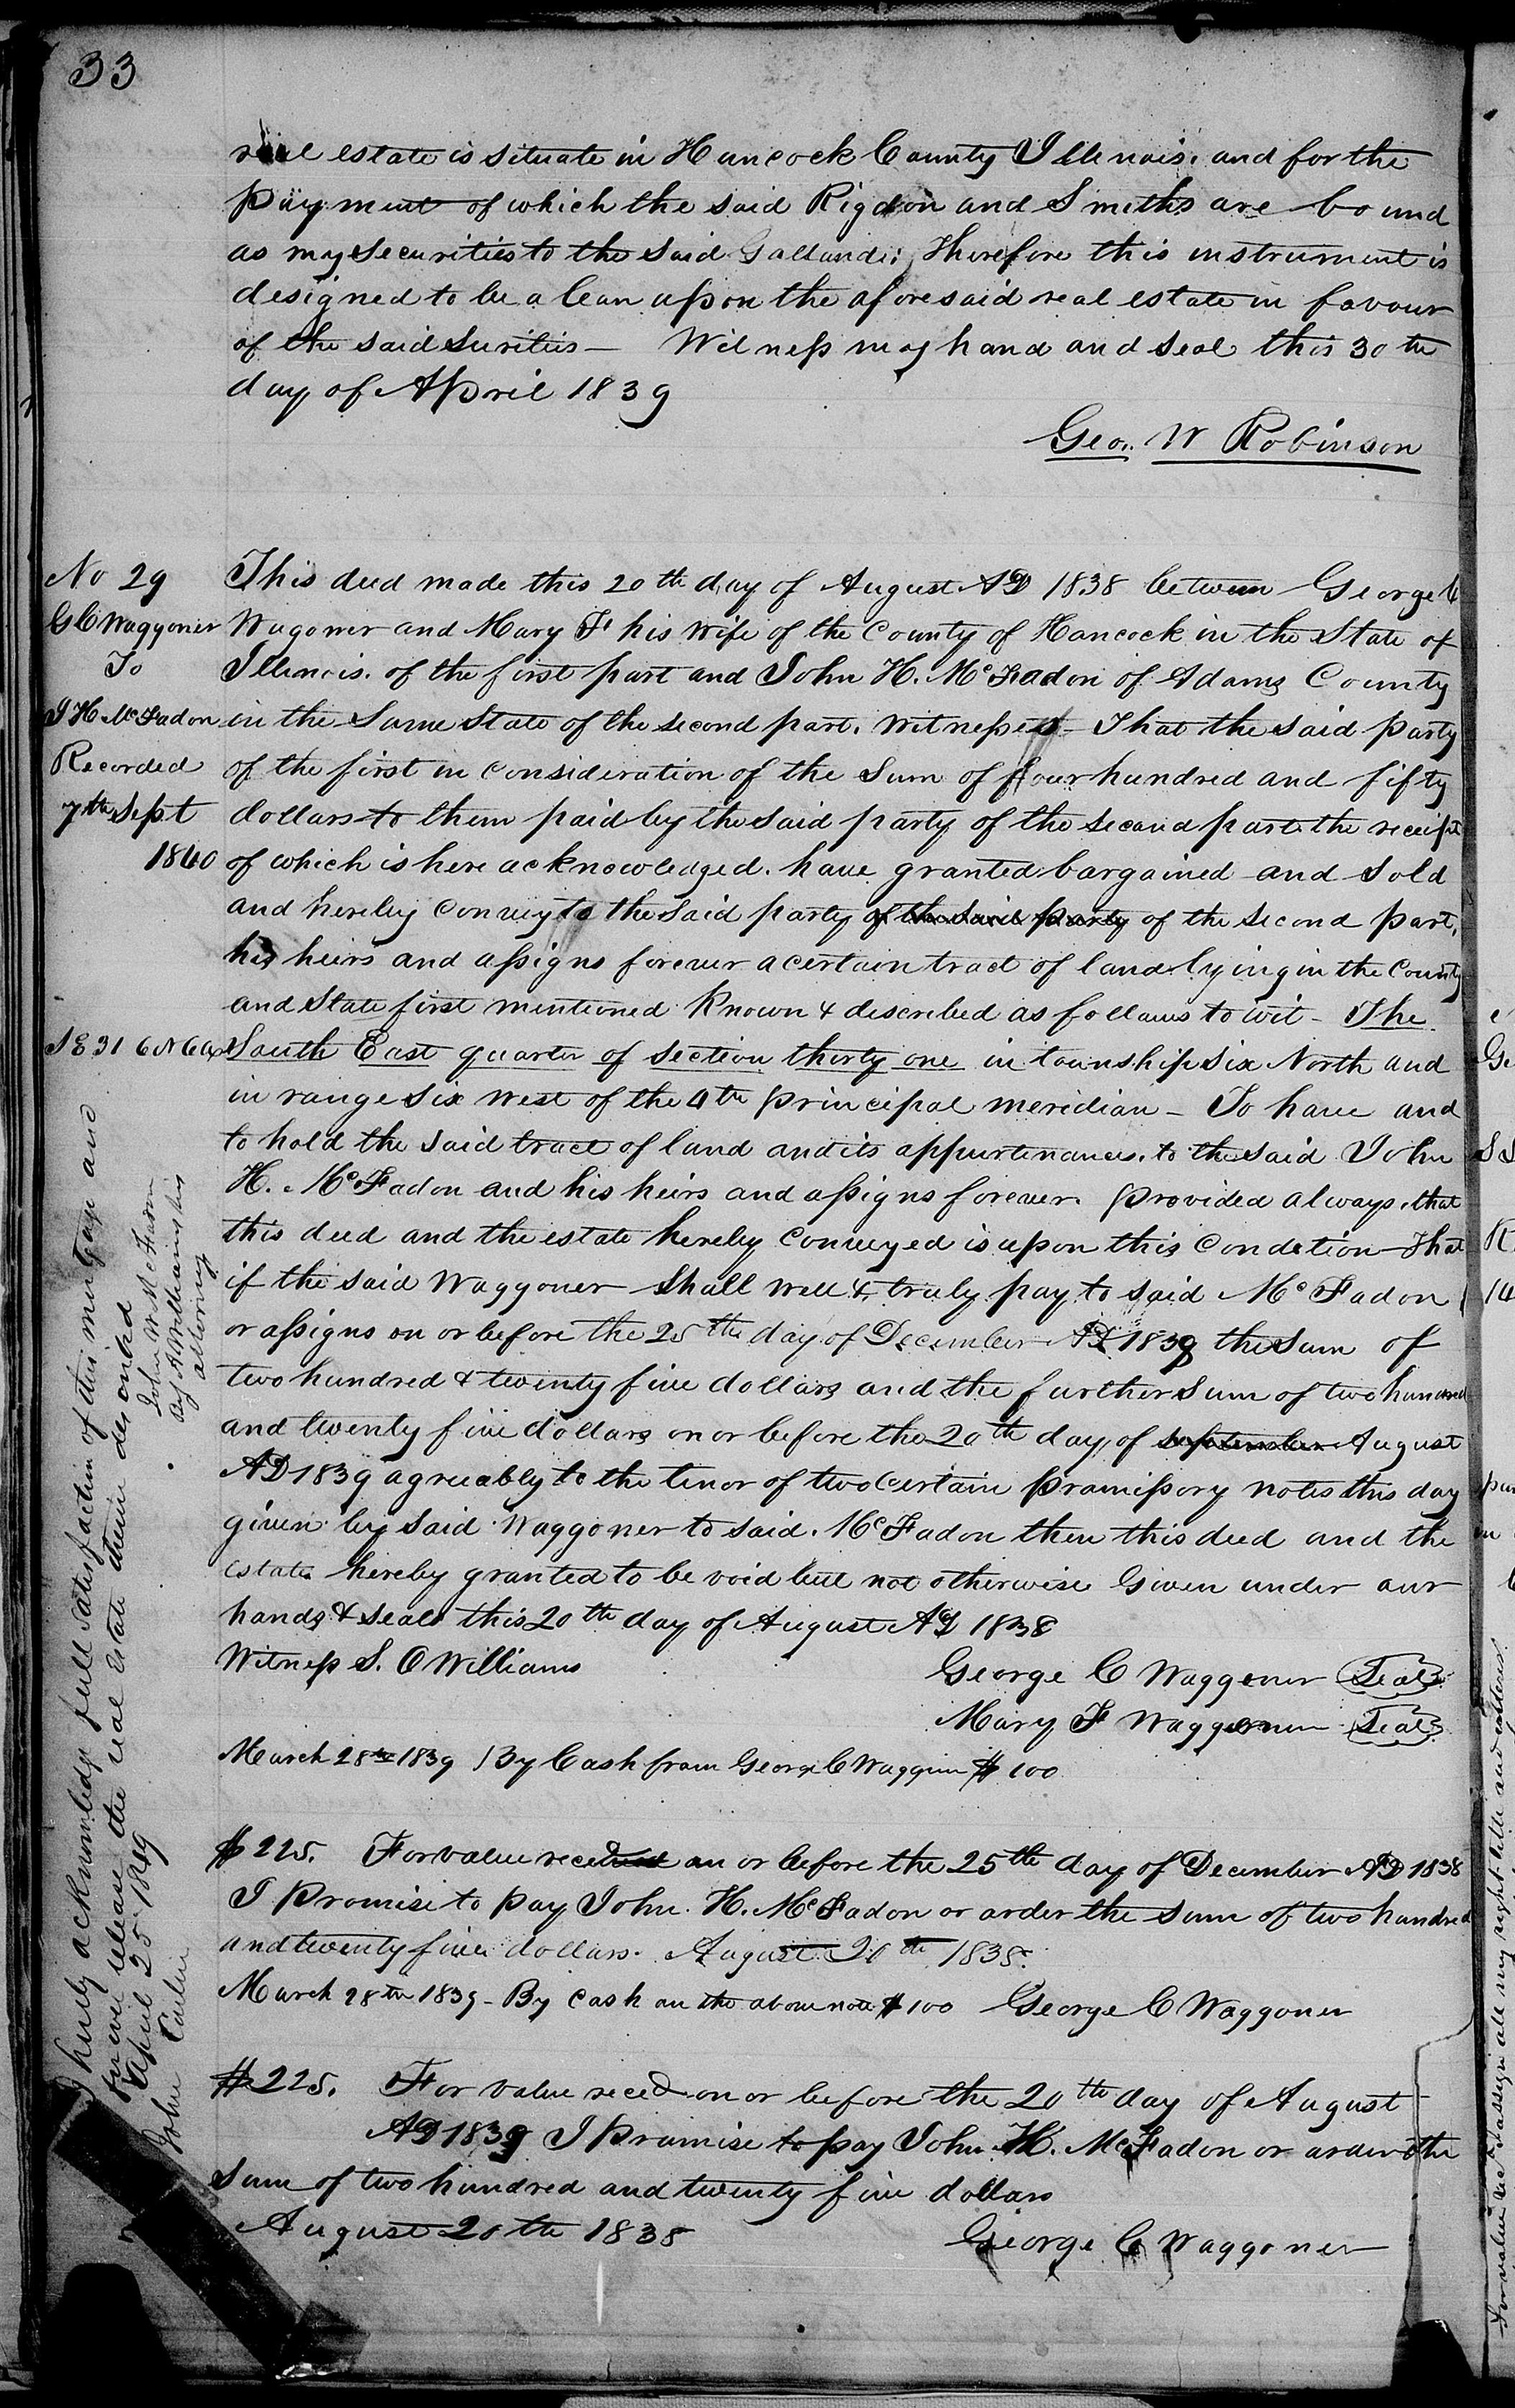 33
real estate is situate in Hancock County Illinois. and for the
payment of which the said Rigdon and Smiths are bound
as my securities to the said Galland; Therefore this instrument is
designed to be a lean upon the aforesaid real estate in favour
of the said Surities — Witness my hand and seal this 30th
day of April 1839
Geo. W Robinson
No 29
G C Waggoner
To
J H McFadon
Recorded
7th Sept
1840
This deed made this 20th day of August AD 1838 between George C
Wagoner and Mary F his wife of the County of Hancock in the State of
Illinois. of the first part and John H. McFadon of Adams County
in the Same State of the second part. Witnesses — That the said party
of the first in consideration of the Sum of four hundred and fifty
dollars to them paid by the said party of the second part the receipt
of which is here acknowledged. have granted bargained and sold
and hereby convey to the said party of the said party of the second part,
his heirs and assigns forever a certain tract of land lying in the County
and State first mentioned Known & described as follows to wit — The
SE 31 6N 6W
South East quarter of section thirty one in township six North and
in range six west of the 4th principal meridian — To have and
to hold the said tract of land and its appurtinances. to the said John
H. McFadon and his heirs and assigns forever. provided always. that
this deed and the estate hereby conveyed is upon this Condetion — That
if the said Waggoner shall well & truly pay to said McFadon
or assigns on or before the 25th day of December AD 1839 the sum of
two hundred & twenty five dollars and the further sum of two hundred
and twenty five dollars on or before the 20th day of september August
AD 1839 agreeably to the tenor of two certain promissory notes this day
given by said Waggoner to said. McFadon then this deed and the
estate hereby granted to be void but not otherwise Given under our
hands & seals this 20th day of August AD 1838
Witness S. O Williams
George C Waggoner Seal
Mary F Waggoner Seal
March 28th 1839 By Cash from George C Waggoner $100
$225. For value received on or before the 25th day of December AD 1838
I Promise to pay John. H. McFadon or order the sum of two hundred
and twenty five dollars. August 20th 1838.
March 28th 1839 — By cash on the above note $100 George C Waggoner
$225. For value reced on or before the 20th day of August
AD 1839 I Promise to pay John H. McFadon or order the
sum of two hundred and twenty five dollars
August 20th 1838
George C Waggoner
I hereby acknowledge full satisfaction of this mortgage and
forever release the real Estate therein described
April 25 1849
John W McFadon
By A Williams his
attorney
John
For value recd I assign all my right title and interest